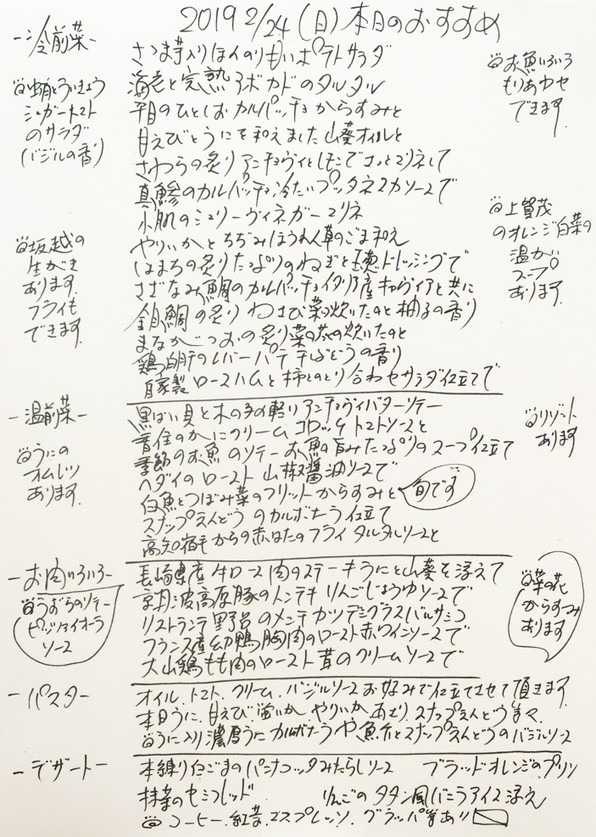 2019 2/24 (日) 本日のおすすめ
-冷前菜-
さつま芋入りほんのり甘いポテトサラダ
海老と完熟アボカドのタルタル
平目のひとしおカルパッチョからすみと
甘えびとうにを和えました山葵オイルと
さわらの炙りアンチョヴィとしそでさっとマリネして
真鰺のカルパッチョ冷たいプッタネスカソースで
小肌のシェリーヴィネガーマリネ
やりいかとちぢみほうれん草のごま和え
はまちの炙りたっぷりのねぎと ドレッシングで
さざなみ鯛のカルパッチョイタリア産キャヴィアと共に
金目鯛の炙りわさび菜の炊いたのと柚子の香り
まながつおの炙り菜の花の炊いたのと
鶏白肝のレバーパテ干しぶどうの香り
自家製ロースハムと柿とのとり合わせサラダ仕立てで
蛸とういきょう
シュガートマト
のサラダ
(バジルの香り)
坂越の
生がき
あります。
フライも
できます。
お魚いろいろ
もりあわせ
できます。
上賀茂
のオレンジ白菜の
温かい
スープ
あります。
-温前菜-
黒ばい貝と木の子の軽いアンチョヴィバターソテー
香住のかにクリームコロッケトマトソースと
季節のお魚のソテーお魚の旨みたっぷりのスープ仕立て
ヘダイのロースト山椒醬油ソースで
白魚とつぼみ菜のフリットからすみと 旬です
スナップえんどうのカルボナーラ仕立て
高知宿毛からの赤はたのフライタルタルソースと
うにの
オムレツ
あります。
リゾット
あります
-お肉いろいろ-
長崎県産牛ロース肉のステーキうにと山葵を添えて
京丹波高原豚のメンチキりんごじょうゆソースで
リストランテ野呂のメンチカツデミグラスバルサミコ
フランス産幼鴨胸肉のロースト赤ワインソースで
大山鶏もも肉のロースト茸のクリームソースで
うずらのソテー
ピッツァイオーラ
ソース
菜の花
からすみ
あります
-パスタ-
オイル、トマト、クリーム、バジルソースお好みで仕立てさせて頂きます。
本日うに、甘えび、蛍いか、やりいか、あさり、スナップえんどう等々、
うに入り濃厚うにカルボナーラや魚介とスナップえんどうのバジルソース
-デザート-
本練り白ごまのパンナコッタみたらしソース ブラッドオレンジのプリン
抹茶のセミフレッド りんごのタタン風バニラアイス添え
コーヒー、紅茶、エスプレッソ、グラッパ等あり